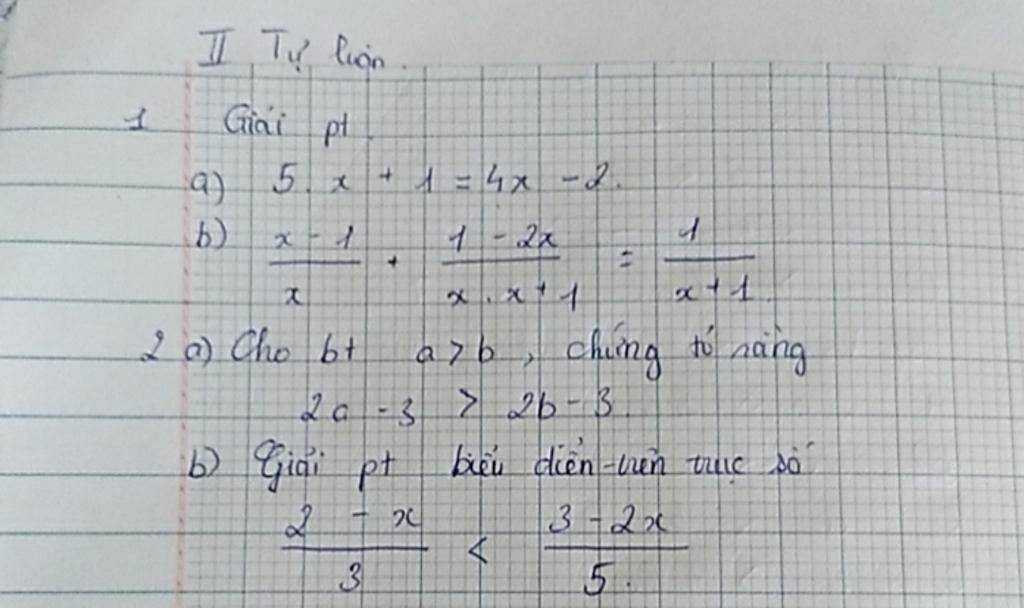 II Tự luận.
1 Giải pt
a) 5. x + 1 = 4x - 2.
b) \frac{x - 1}{x} + \frac{1 - 2x}{x . x + 1} = \frac{1}{x + 1}.
2 a) Cho bt a > b, chứng tỏ rằng
2a - 3 > 2b - 3.
b) Giải pt biểu diễn trên trục số
\frac{2 - x}{3} < \frac{3 - 2x}{5}.